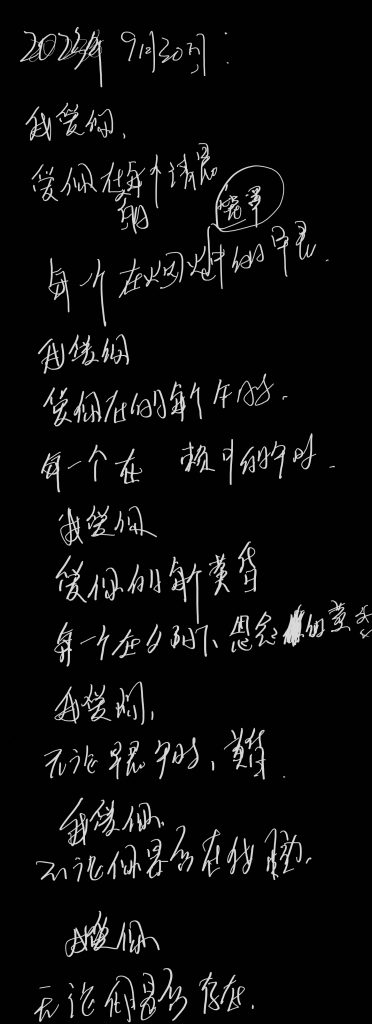 2023年9月30日:
我爱你,
爱你在每个清晨
的
笼罩
每一个在火中的早晨.
我爱你
爱你在的每个午时.
每一个在 的午时.
我爱你
爱你的每个黄昏
每一个在夕阳下思念的黄昏
我爱你,
无论早晨午时,黄昏.
我爱你.
无论你是否在我身边.
我爱你.
无论你是否存在.